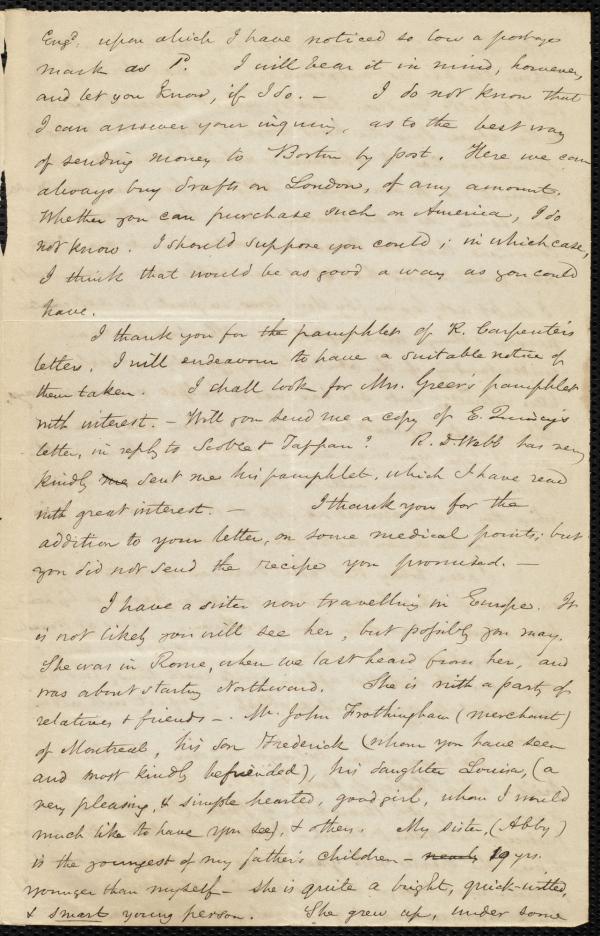 Engd. upon which I have noticed so low a postage
mark as 1d. I will bear it in mind, however,
and let you know, if I do. — I do not know that
I can answer your inquiry, as to the best way
of sending money to Boston by post. Here we can
always buy drafts on London, of any amount.
Whether you can purchase such on America, I do
not know. I should suppose you could; in which case,
I think that would be as good a way as you could
have.
I thank you for the pamphlets of R. Carpenter's
letters. I will endeavour to have a suitable notice of
them taken. I shall look for Mrs. Greer's pamphlet
with interest. — Will you send me a copy of E. Quincy's
letter, in reply to Scoble & Tappan? R. D. Webb has very
kindly me sent me his pamphlet, which I have read
with great interest. — I thank you for the
addition to your letter, on some medical points; but
you did not send the recipe you promised. —
I have a sister now travelling in Europe. It
is not likely you will see her, but possibly you may.
She was in Rome, when we last heard from her, and
was about starting Northward. She is with a party of
relatives & friends —. Mr. John Frothingham (merchant)
of Montreal, his son Frederick (whom you have seen
and most kindly befriended), his daughter Louisa, (a
very pleasing, & simple hearted, good girl, whom I would
much like to have you see), & others. My sister, (Abby)
is the youngest of my father's children — nearly 19 yrs.
younger than myself — she is quite a bright, quick-witted,
& smart young person. She grew up, under some